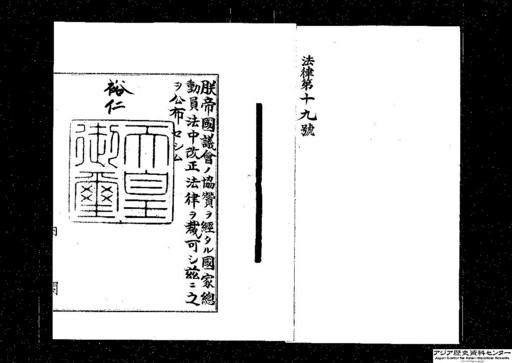 法律第十九號
朕帝國議會ノ協贊ヲ經タル國家總
動員法中改正法律ヲ裁可シ茲ニ之
ヲ公布セシム
裕仁
天皇
御璽
内閣
アジア歴史資料センター
Japan Center for Asian Historical Records